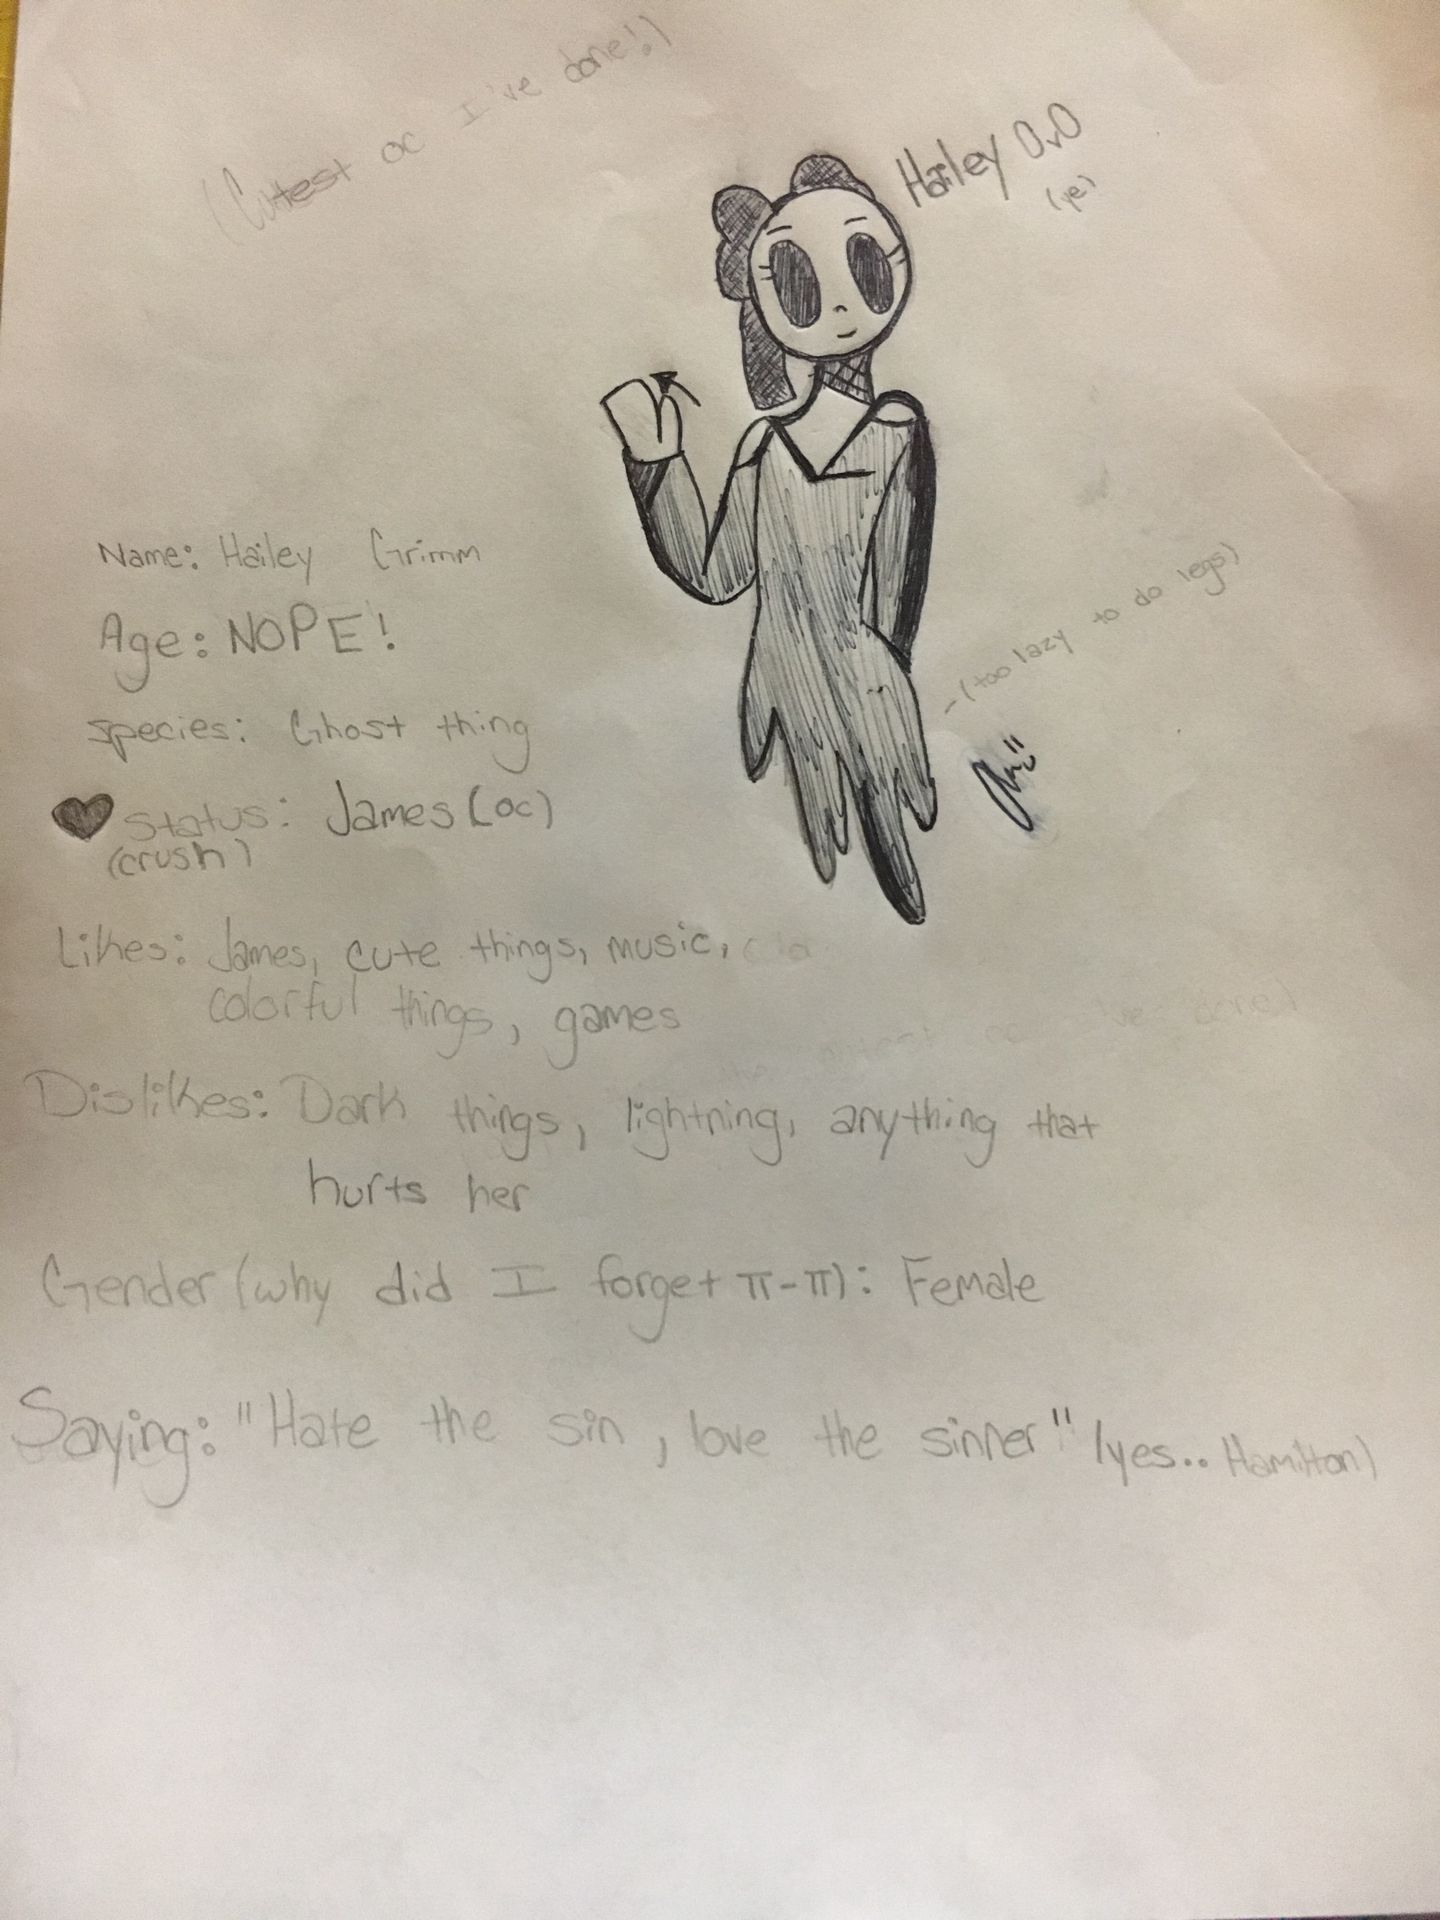 (Cutest oc I've done!)
Hailey OvO
(ye)
Name: Hailey Grimm
Age: NOPE!
- (too lazy to do legs)
species: Ghost thing
status: James (oc)
(crush)
Likes: James, cute things, music,
colorful things, games
Dislikes: Dark things, lightning, anything that
hurts her
Gender (why did I forget π-π): Female
Saying: "Hate the sin, love the sinner" (yes.. Hamilton)